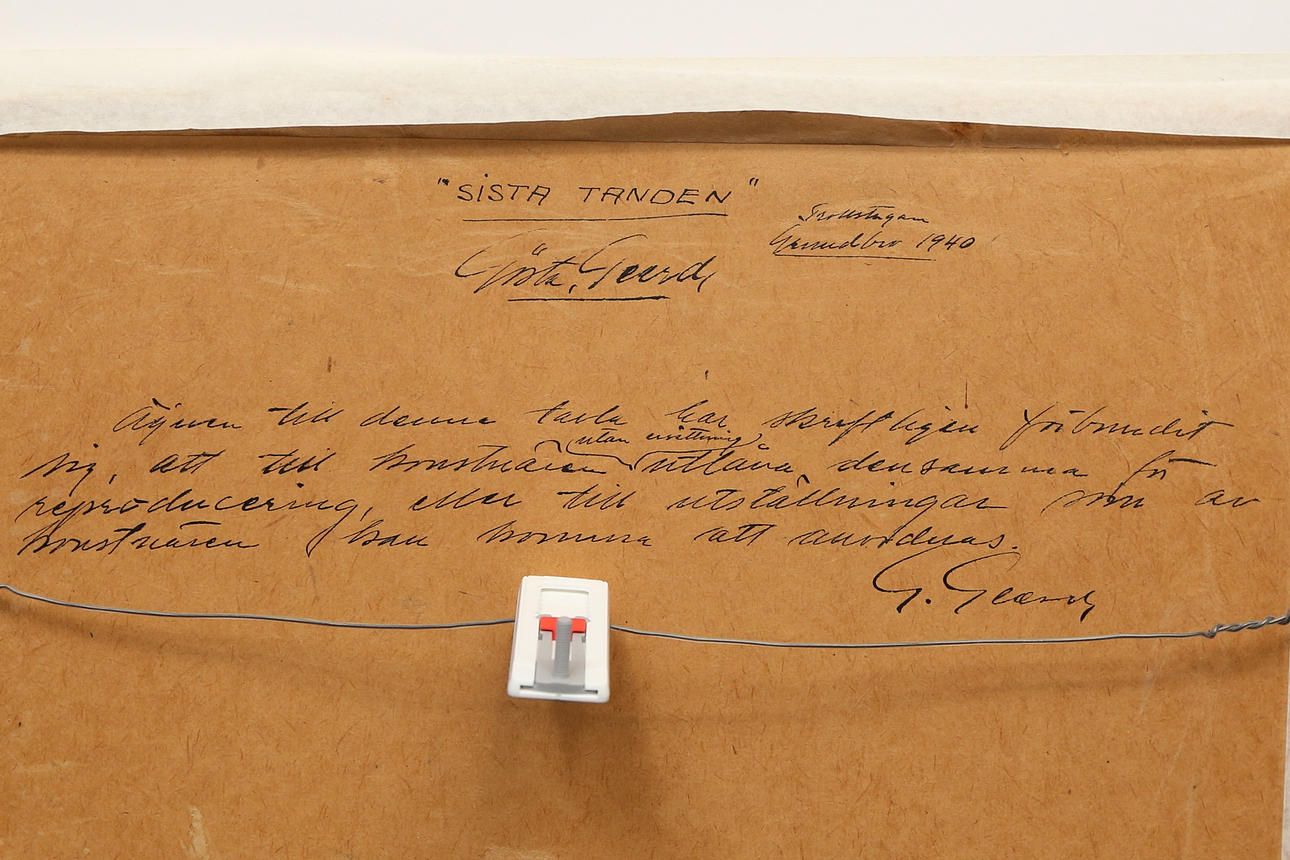 "SISTA TANDEN"
Grundbro 1940
Gösta Geerd
Ägaren till denna tavla har skriftligen förbundit
sig, att till konstnären utlåna densamma för
utan ersättning
reproducering, eller till utställningar som av
konstnären kan komma att anordnas.
G. Geerd